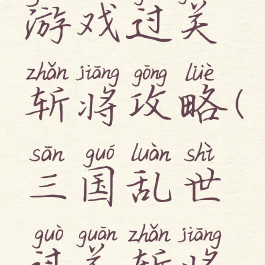 游戏过关
zhǎn jiāng gōng lüè
斩将攻略(
sān guó luàn shì
三国乱世
guò guān zhǎn jiāng
过关斩将